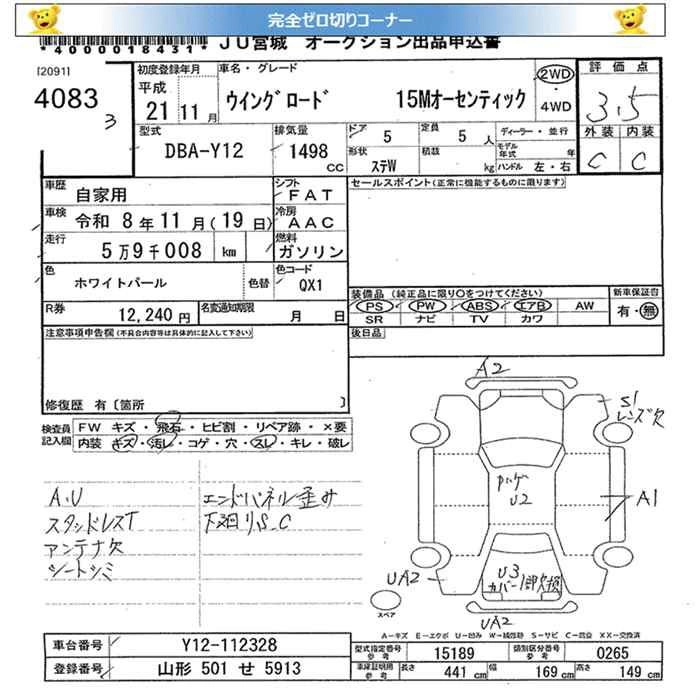 完全ゼロ切りコーナー
*4000018431* JU宮城 オークション出品申込書
[2091]
4083
3
初度登録年月
平成
21 11月
車名・グレード
ウイングロード 15Mオーセンティック
2WD
4WD
評価点
3.5
外装 内装
C C
型式
DBA-Y12
排気量
1498
CC
ドア
5
定員
5人
形状
ステW
積載
kg
ディーラー・並行
モデル年式 年
ハンドル 左・右
車歴
自家用
シフト
FAT
車検
令和 8年 11月(19日)
冷房
AAC
走行
5万9千008 km
燃料
ガソリン
色
ホワイトパール
色替
色コード
QX1
R券
12,240円
名変通知期限
月 日
セールスポイント(正常に機能するものに限ります)
装備品(純正品に限り○をつけてください)
新車保証書
PS PW ABS エアB AW
SR ナビ TV カワ
有・無
後日品
注意事項申告欄(不具合内容等は具体的に記入して下さい)
修復歴 有〔箇所 〕
検査員記入欄
FW キズ・飛石・ヒビ割・リペア跡・×要
内装 キズ・汚レ・コゲ・穴・スレ・キレ・破レ
A.U
スタッドレスT
アンテナ欠
シートシミ
エンドパネル歪み
下廻りS.C
A2
S1
レンズ欠
U2
A1
UA2
U3
カバー1部欠損
UA2
スペア
A-キズ E-エクボ U-凹み W-補修跡 S-サビ C-腐食 XX-交換済
車台番号
Y12-112328
登録番号
山形 501 せ 5913
型式指定番号
参考
15189
類別区分番号
参考
0265
車庫証明用
参考
長さ
441 cm
幅
169 cm
高さ
149 cm